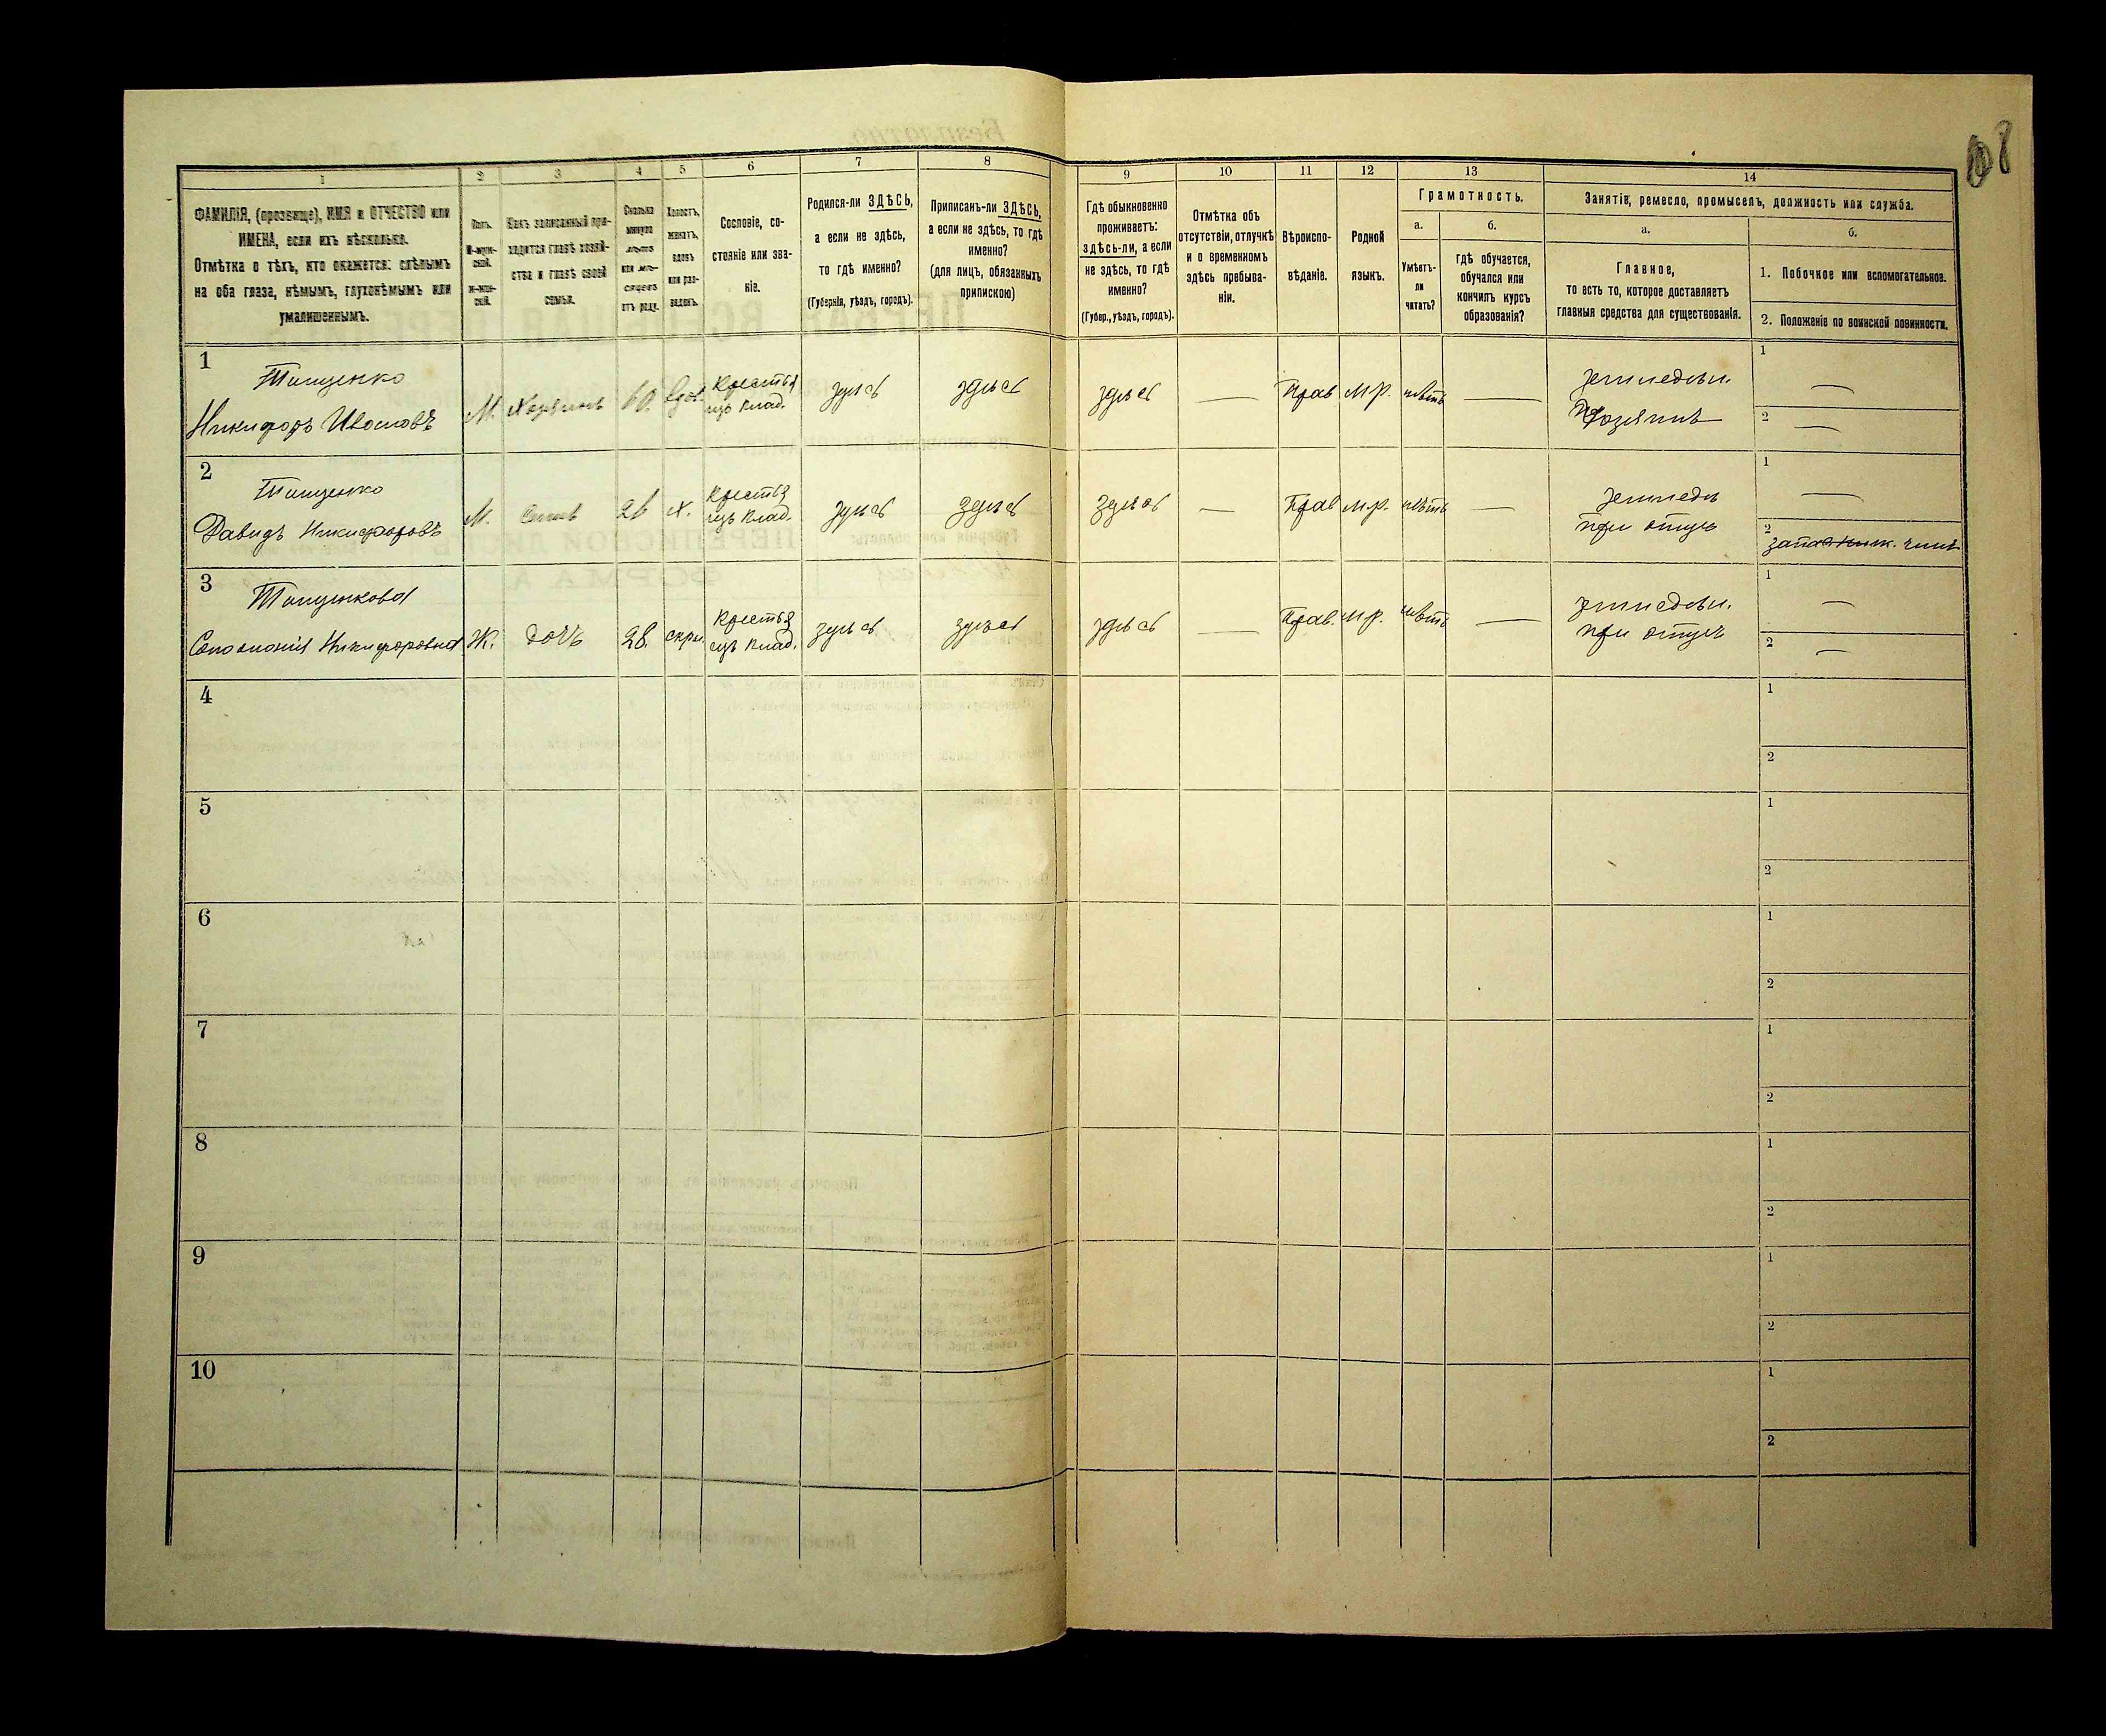 108
1
2
3
4
5
6
7
8
9
10
11
12
13
14
ФАМИЛІЯ, (прозвище), ИМЯ и ОТЧЕСТВО или
ИМЕНА, если ихъ нѣсколько.
Отмѣтка о тѣхъ, кто окажется: слѣпымъ
на оба глаза, нѣмымъ, глухонѣмымъ или
умалишеннымъ.
Полъ.
М-муж-
ской.
Ж-жен-
скій.
Какъ записанный при-
ходится главѣ хозяй-
ства и главѣ своей
семьи.
Сколько
минуло
лѣтъ
или мѣ-
сяцевъ
отъ роду.
Холостъ,
женатъ,
вдовъ
или раз-
веденъ.
Сословіе, со-
стояніе или зва-
ніе.
Родился-ли ЗДѢСЬ,
а если не здѣсь,
то гдѣ именно?
(Губернія, уѣздъ, городъ).
Приписанъ-ли ЗДѢСЬ,
а если не здѣсь, то гдѣ
именно?
(для лицъ, обязанныхъ
припискою)
Гдѣ обыкновенно
проживаетъ:
здѣсь-ли, а если
не здѣсь, то гдѣ
именно?
(Губер., уѣздъ, городъ).
Отмѣтка объ
отсутствіи, отлучкѣ
и о временномъ
здѣсь пребыва-
ніи.
Вѣроиспо-
вѣданіе.
Родной
языкъ.
Грамотность.
а.
Умѣетъ-
ли
читать?
б.
гдѣ обучается,
обучался или
кончилъ курсъ
образованія?
Занятіе, ремесло, промыселъ, должность или служба.
а.
Главное,
то есть то, которое доставляетъ
главныя средства для существованія.
б.
1. Побочное или вспомогательное.
2. Положеніе по воинской повинности.
1
Тищенко
Никифоръ Ивановъ
М.
Хозяинъ
60.
вдов.
Крестья
изъ влад.
здѣсь
здѣсь
здѣсь
—
Прав.
М.р.
нѣтъ
—
земледѣл.
хозяинъ
1 —
2 —
2
Тищенко
Давидъ Никифоровъ
М.
Сынъ
26
х.
Крестья
изъ влад.
здѣсь
здѣсь
здѣсь
—
Прав
М.р.
нѣтъ
—
земледѣ
при отцѣ
1 —
2 запас. ниж. чинъ
3
Тищенкова
Соломонія Никифоровна
Ж.
дочь
28.
Крестья
изъ влад.
здѣсь
здѣсь
здѣсь
—
Прав.
М.р.
нѣтъ
—
земледѣл.
при отцѣ
1 —
2 —
4
1
2
5
1
2
6
1
2
7
1
2
8
1
2
9
1
2
10
1
2